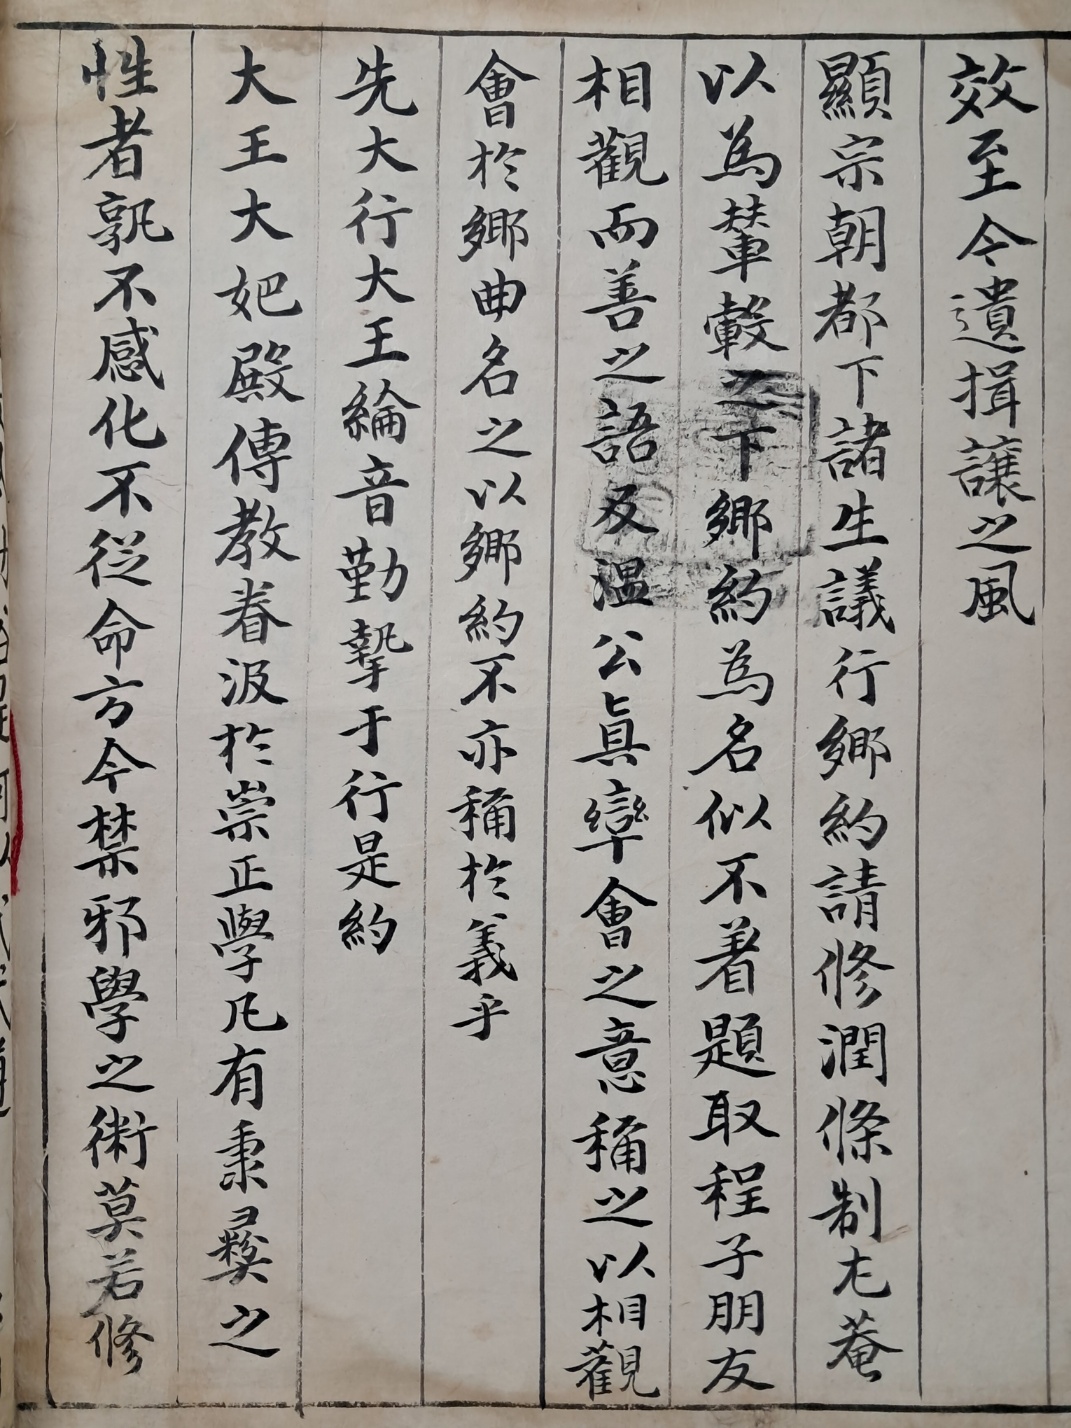 效至今遺揖讓之風
顯宗朝都下諸生議行鄉約請修潤條制尤菴
以為輦轂之下鄉約為名似不着題取程子朋友
相觀而善之語及溫公眞率會之意稱之以相觀
會於鄉曲名之以鄉約不亦稱於義乎
先大行大王綸音勤摯于行是約
大王大妃殿傳教眷汲於崇正學凡有秉彝之
性者孰不感化不從命方今禁邪學之術莫若修